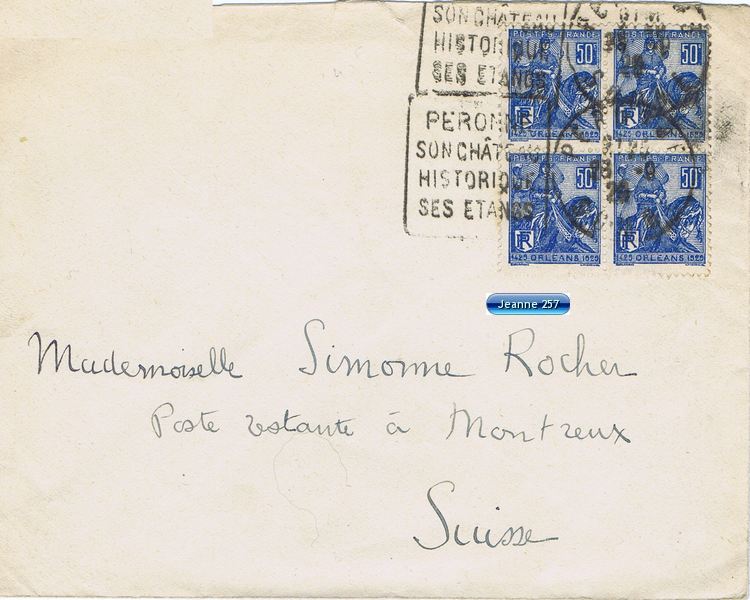 SON CHÂTEAU
HISTORIQUE
SES ETANGS
PERONNE
SON CHÂTEAU
HISTORIQUE
SES ETANGS
POSTES-FRANCE POSTES-FRANCE
50c 50c
RF RF
1429 ORLEANS 1929 1429 ORLEANS 1929
POSTES-FRANCE POSTES-FRANCE
50c 50c
RF RF
1429 ORLEANS 1929 1429 ORLEANS 1929
Jeanne 257
Mademoiselle Simonne Rocher
Poste restante à Montreux
Suisse